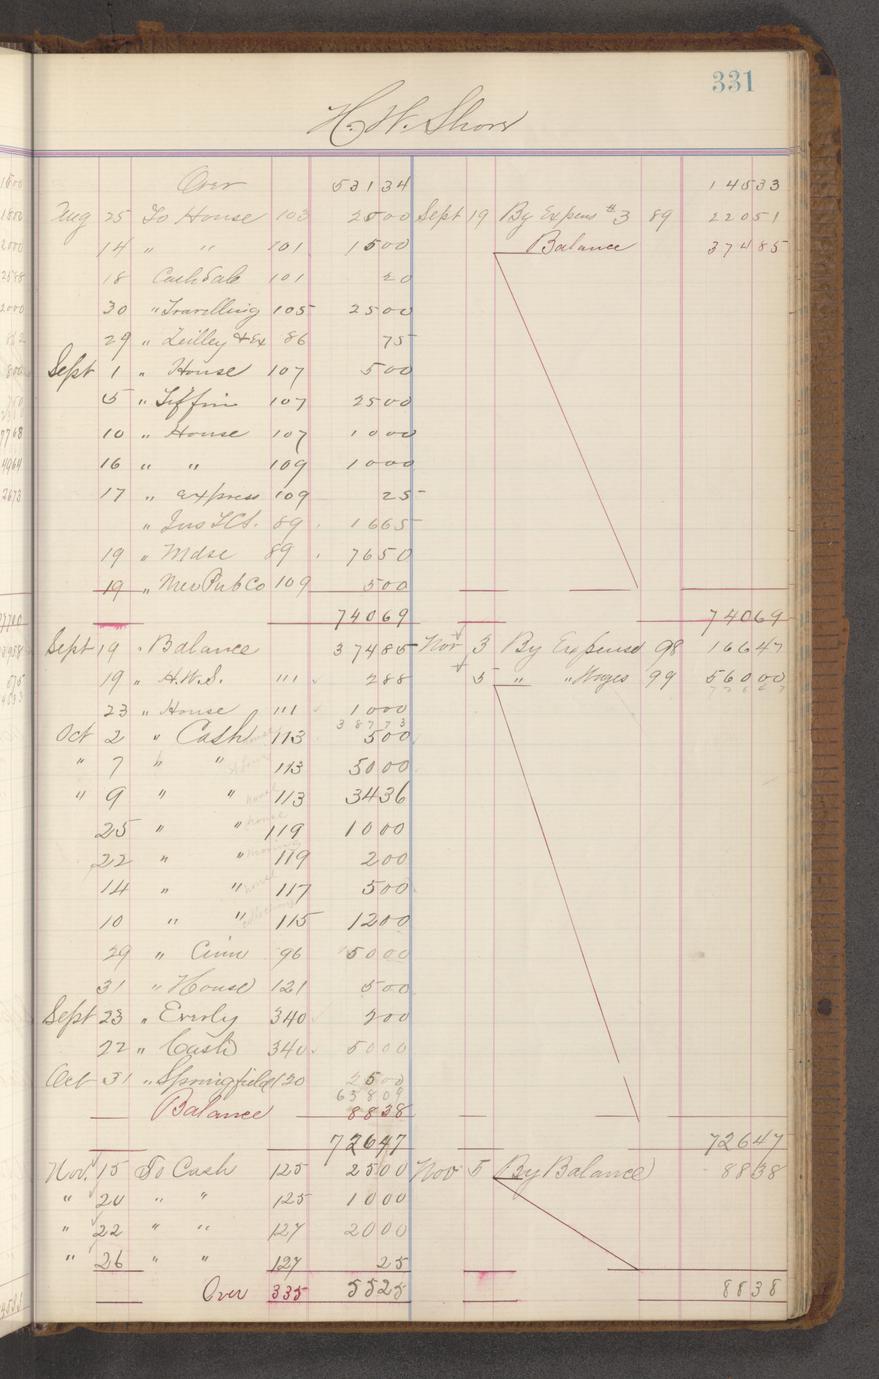 331
H. W. Shorr
Over 53134 14533
Aug 25 To House 103 2500 Sept 19 By Expens #3 89 22051
14 " " 101 1500 Balance 37485
18 Cash Sale 101 20
30 " Travelling 105 2500
29 " Zeilley & Ex 86 75
Sept 1 " House 107 500
5 " Tiffin 107 2500
10 " House 107 1000
16 " " 109 1000
17 " express 109 25
" 89 1665
19 " Mdse 89 7650
19 " Mer Pub Co 109 500
74069 74069
Sept 19 " Balance 37485 Nov 3 By Expense 98 16647
19 " H.W.S. 111 288 5 " " Wages 99 56000
23 " House 111 1000
38773
Oct 2 " Cash 113 500
" 7 " " 113 5000
" 9 " " house 113 3436
25 " " house 119 1000
22 " " 119 200
14 " " house 117 500
10 " " 115 1200
29 " Cinn 96 5000
31 " House 121 500
Sept 23 " Everly 340 200
22 " Cash 340 5000
Oct 31 " Springfield 120 2500
63809
Balance 8838
72647 72647
Nov. 15 To Cash 125 2500 Nov 5 By Balance 8838
" 20 " " 125 1000
" 22 " " 127 2000
" 26 " " 127 25
Over 335 5525 8838